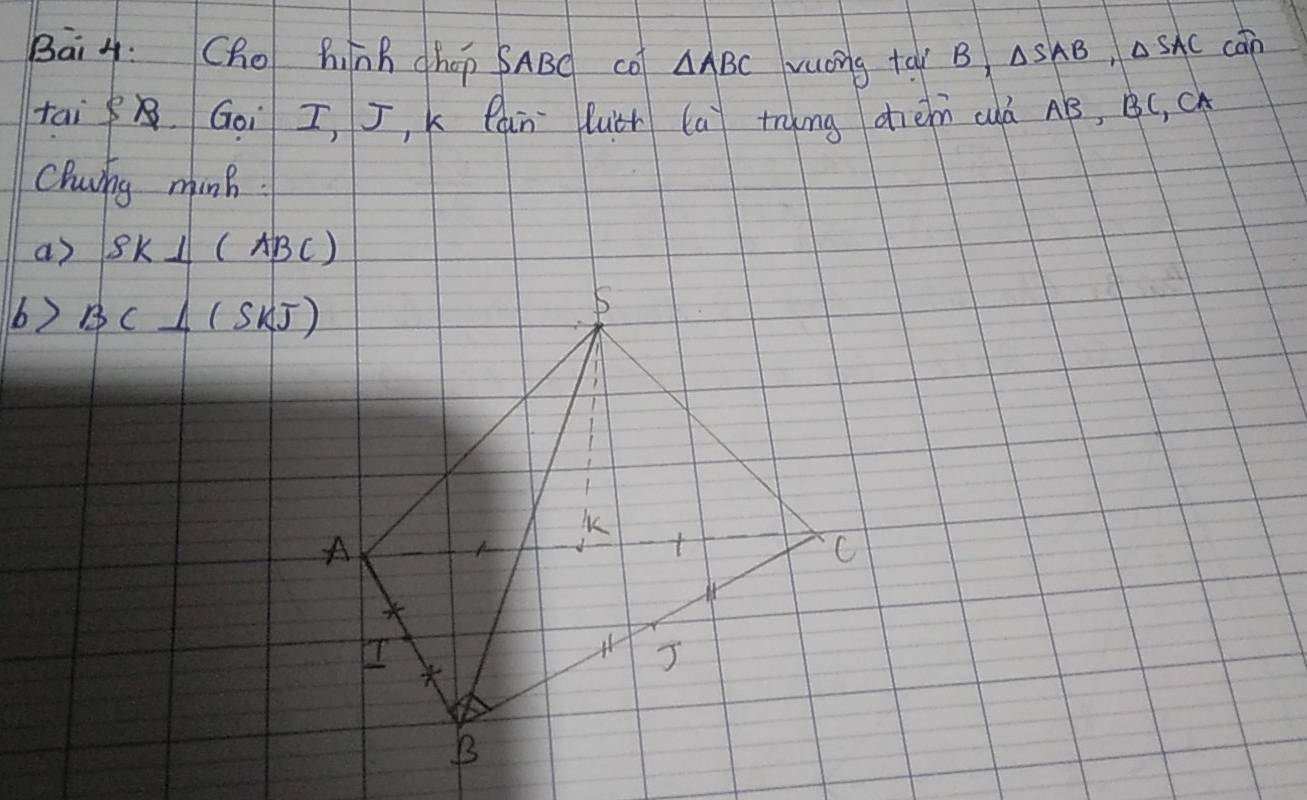 Bài 4: Cho hình chóp SABC có ΔABC vuông tại B, ΔSAB, ΔSAC cân
tại S. Gọi I, J, K lần lượt là trung điểm của AB, BC, CA
Chứng minh:
a) SK ⊥ (ABC)
b) BC ⊥ (SKJ)
S
K
A
C
I
J
B